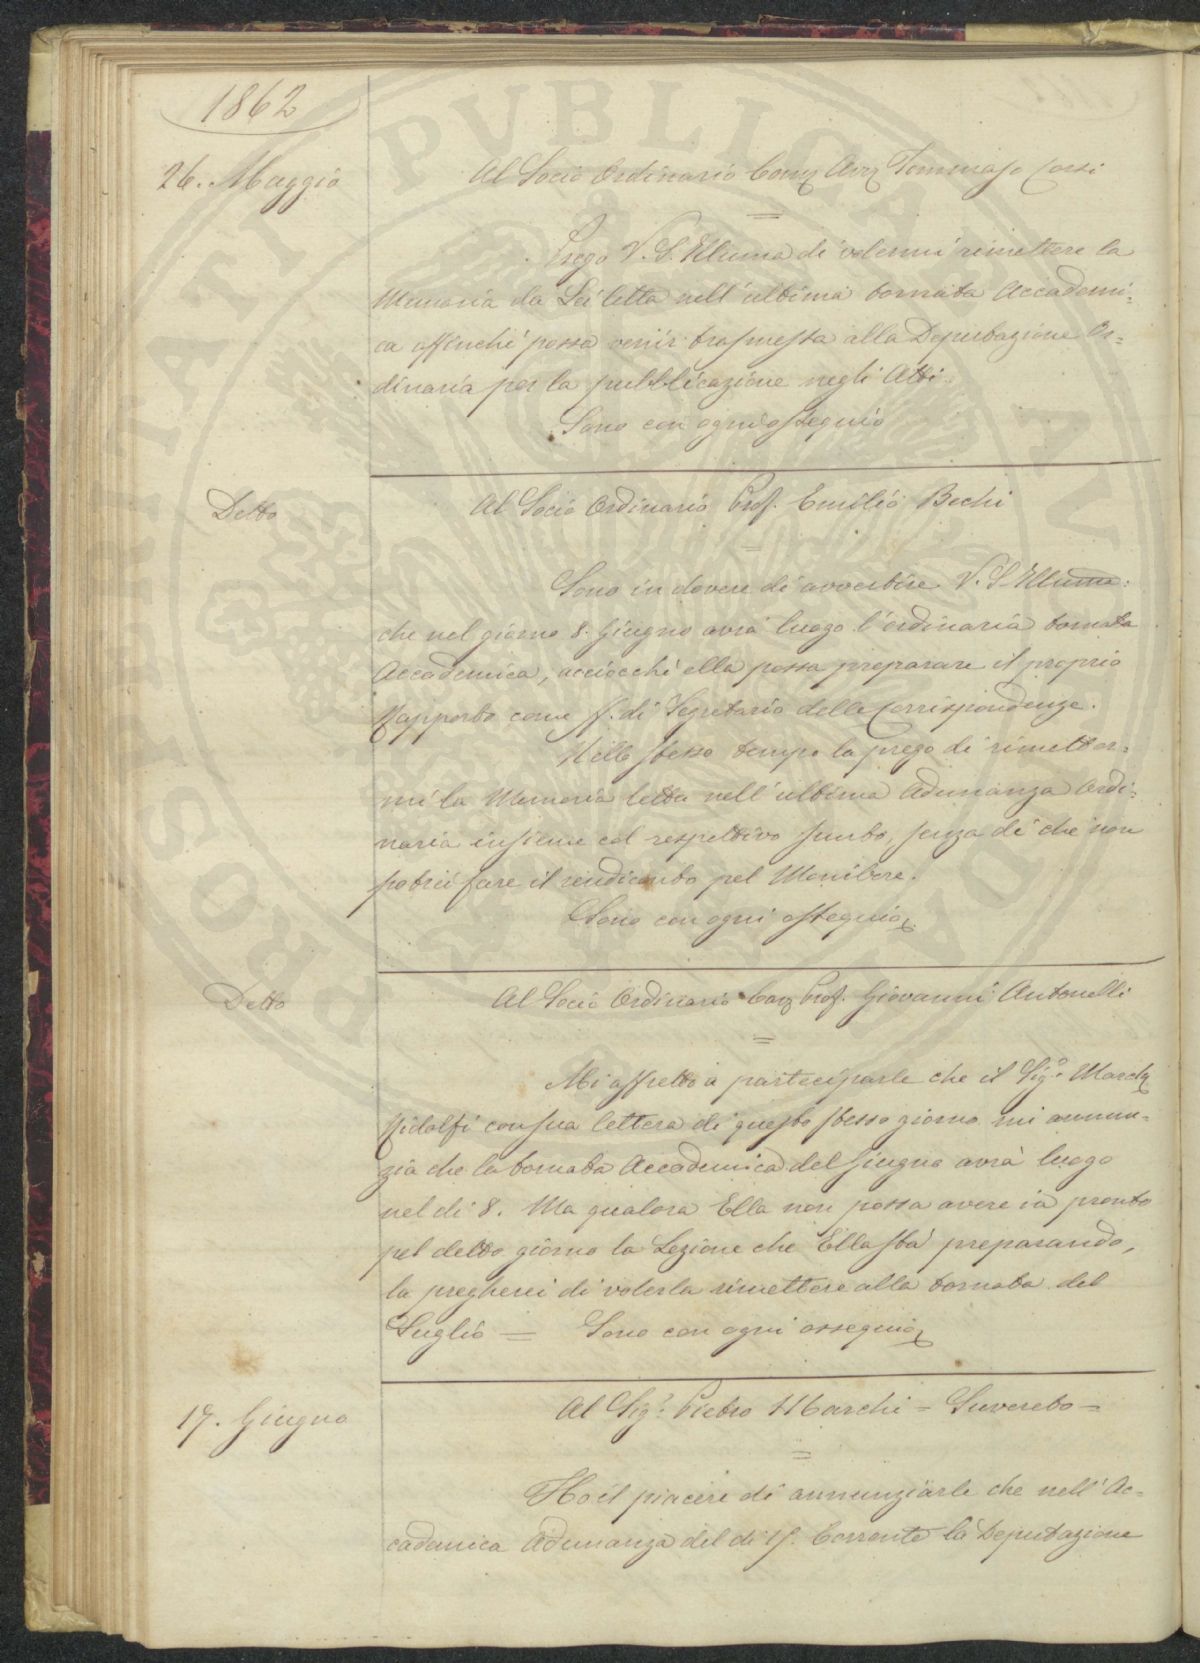 1862
26. Maggio
Al Socio Ordinario Comm Avv Tommaso Corsi
Prego V. S. Illuma di volermi rimettere la
Memoria da Lei letta nell'ultima tornata Accademi=
ca affinché possa venir trasmessa alla Deputazione Or=
dinaria per la pubblicazione negli Atti.
Sono con ogni ossequio
Detto
Al Socio Ordinario Prof. Emilio Bechi
Sono in dovere di avvertire V. S. Illuma:
che nel giorno 8. Giugno avrà luogo l'ordinaria tornata
Accademica, acciocché ella possa preparare il proprio
Rapporto come f. di Segretario delle Corrispondenze.
Nello stesso tempo la prego di rimetter=
mi la Memoria letta nell'ultima Adunanza Ordi=
naria insieme col respettivo sunto, senza di che non
potrei fare il rendiconto pel Monitore.
Sono con ogni ossequio
Detto
Al Socio Ordinario Cav Prof. Giovanni Antonelli
Mi affretto a parteciparle che il Sigo. March
Ridolfi con sua lettera di questo stesso giorno mi annun=
zia che la tornata Accademica del Giugno avrà luogo
nel di 8. Ma qualora Ella non possa avere in pronto
pel detto giorno la Lezione che Ella sta preparando,
la pregherei di volerla rimettere alla tornata del
Luglio = Sono con ogni ossequio
17. Giugno
Al Sigr. Pietro Marchi = Suvereto =
Ho il piacere di annunziarle che nell'Ac=
cademica Adunanza del di Corrente la Deputazione
PROSPERITATI PVBLICAE AVGENDAE